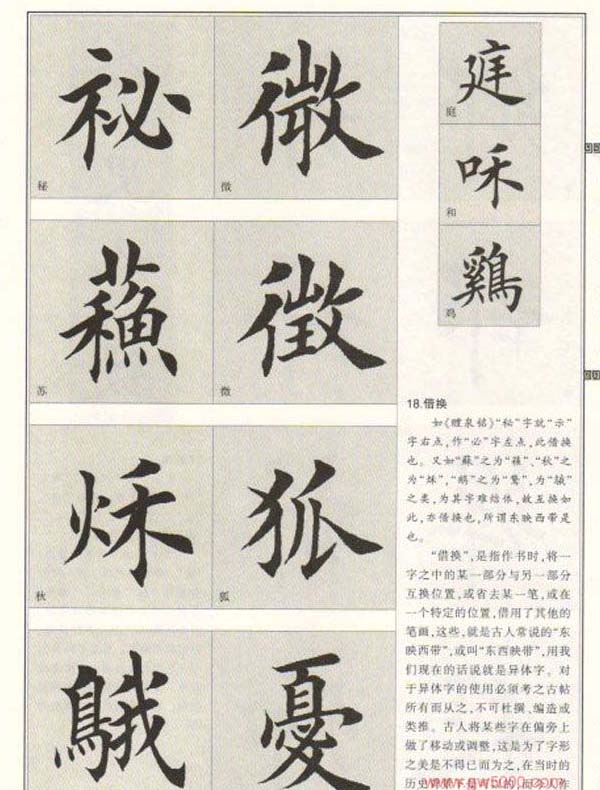 祕 微
秘 微
蘓 徵
苏 微
秌 狐
秋 狐
䳘 憂
庭
庭
咊
和
鷄
鸡
18.借换
如《醴泉铭》“秘”字就“示”
字右点,作“必”字左点,此借换
也。又如“蘇”之为“蘓”、“秋”之
为“秌”,“鹅”之为“鵞”,为“䳘”
之类,为其字难结体,故互换如
此,亦借换也,所谓东映西带是
也。
“借换”,是指作书时,将一
字之中的某一部分与另一部分
互换位置,或省去某一笔,或在
一个特定的位置,借用了其他的
笔画,这些,就是古人常说的“东
映西带”,或叫“东西映带”,用我
们现在的话说就是异体字。对
于异体字的使用必须考之古帖
所有而从之,不可杜撰、编造或
类推。古人将某些字在偏旁上
做了移动或调整,这是为了字形
之美是不得已而为之,在当时的
历史